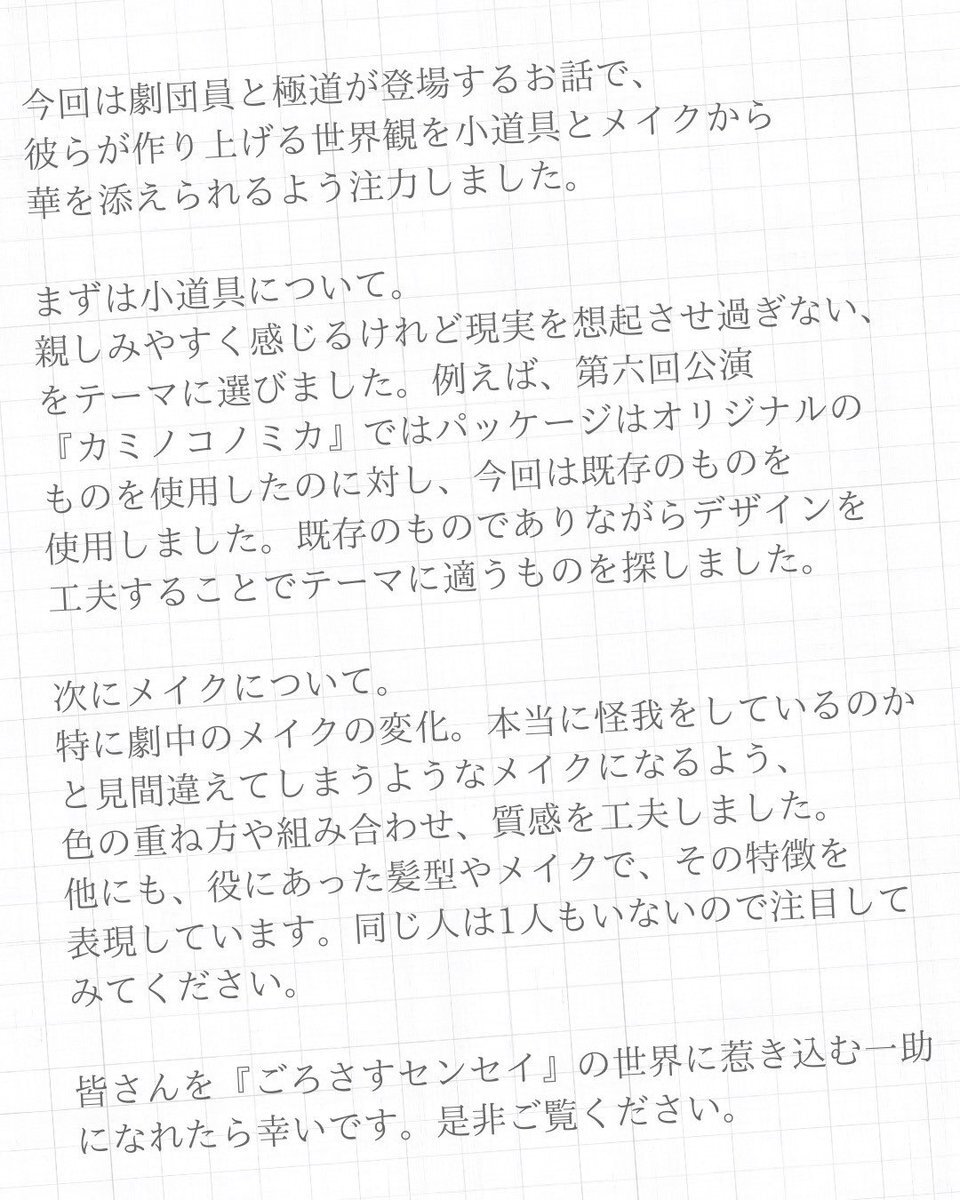 今回は劇団員と極道が登場するお話で、
彼らが作り上げる世界観を小道具とメイクから
華を添えられるよう注力しました。
まずは小道具について。
親しみやすく感じるけれど現実を想起させ過ぎない、
をテーマに選びました。例えば、第六回公演
『カミノコノミカ』ではパッケージはオリジナルの
ものを使用したのに対し、今回は既存のものを
使用しました。既存のものでありながらデザインを
工夫することでテーマに適うものを探しました。
次にメイクについて。
特に劇中のメイクの変化。本当に怪我をしているのか
と見間違えてしまうようなメイクになるよう、
色の重ね方や組み合わせ、質感を工夫しました。
他にも、役にあった髪型やメイクで、その特徴を
表現しています。同じ人は1人もいないので注目して
みてください。
皆さんを『ごろさすセンセイ』の世界に惹き込む一助
になれたら幸いです。是非ご覧ください。